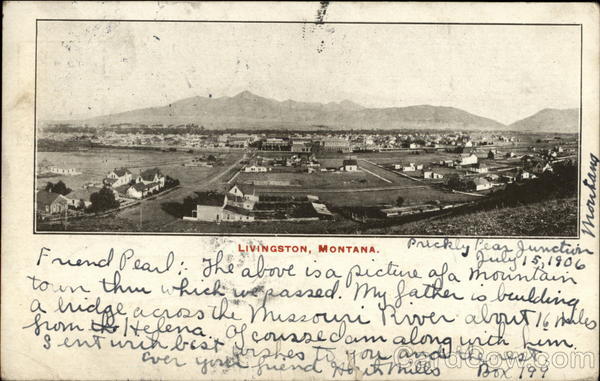 LIVINGSTON, MONTANA.
Prickly Pear Junction
Montana
July 15, 1906
Friend Pearl: The above is a picture of a Mountain
town thru which we passed. My father is building
a bridge across the Missouri River about 16 miles
from Helena. Of course am along with him.
Sent with best wishes to you and the rest
Ever your friend Mills Box 799
CardCow.com